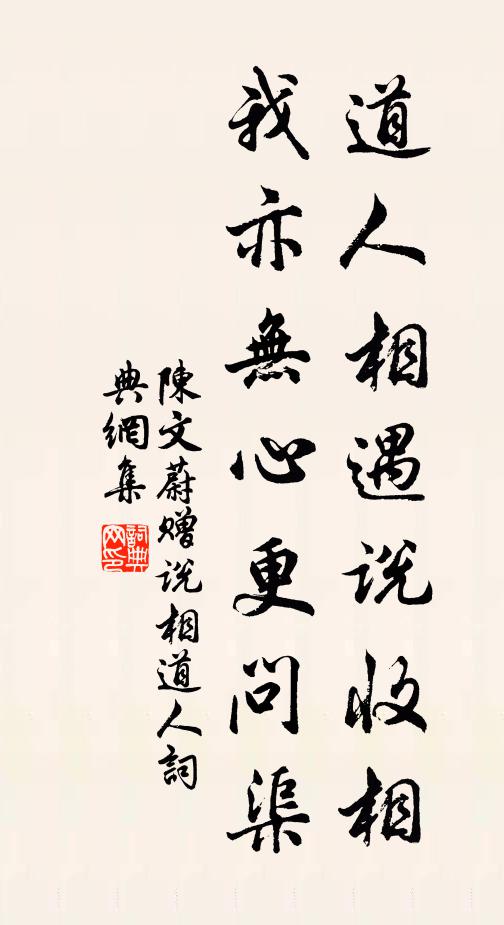 道人相遇說收相
我亦無心更問渠
陳文蔚贈說相道人詞
典網集
詞典網印